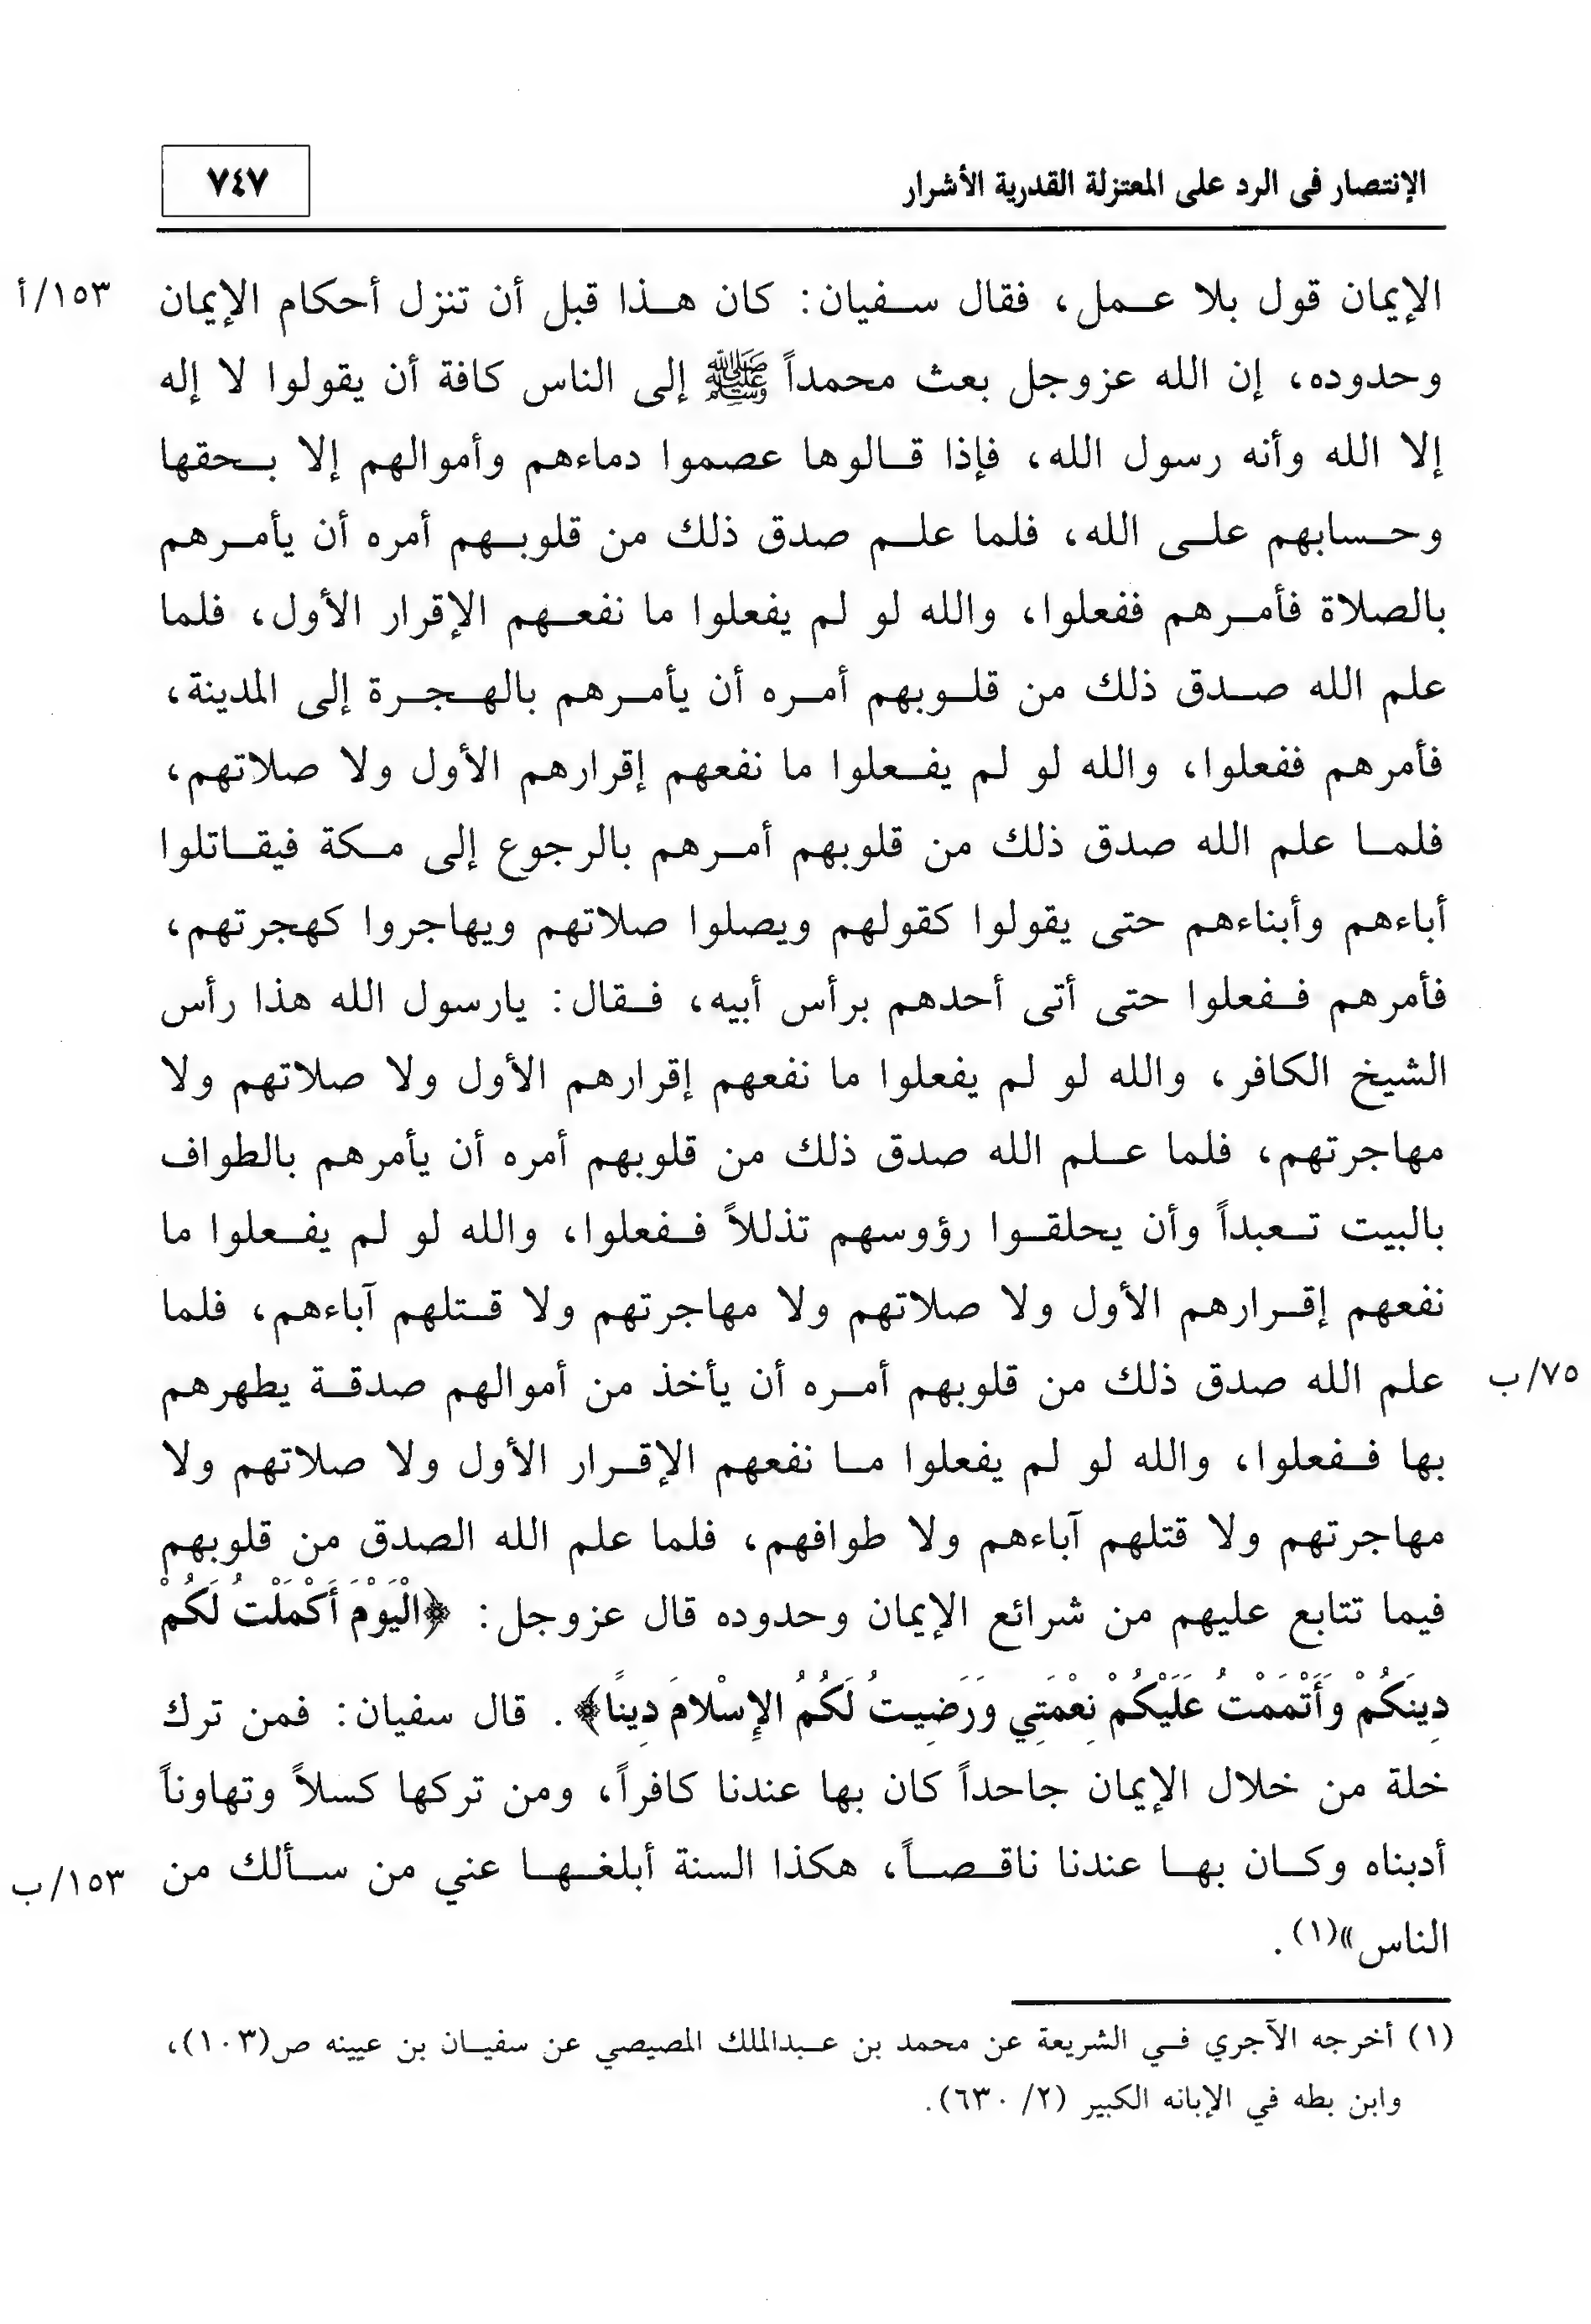 الإنتصار فى الرد على المعتزلة القدرية الأشرار
٧٤٧
الإيمان قول بلا عمل، فقال سفيان: كان هذا قبل أن تنزل أحكام الإيمان ١٥٣/أ
وحدوده، إن الله عزوجل بعث محمداً ﷺ إلى الناس كافة أن يقولوا لا إله
إلا الله وأنه رسول الله، فإذا قالوها عصموا دماءهم وأموالهم إلا بحقها
وحسابهم على الله، فلما علم صدق ذلك من قلوبهم أمره أن يأمرهم
بالصلاة فأمرهم ففعلوا، والله لو لم يفعلوا ما نفعهم الإقرار الأول، فلما
علم الله صدق ذلك من قلوبهم أمره أن يأمرهم بالهجرة إلى المدينة،
فأمرهم ففعلوا، والله لو لم يفعلوا ما نفعهم إقرارهم الأول ولا صلاتهم،
فلما علم الله صدق ذلك من قلوبهم أمرهم بالرجوع إلى مكة فيقاتلوا
أباءهم وأبناءهم حتى يقولوا كقولهم ويصلوا صلاتهم ويهاجروا كهجرتهم،
فأمرهم ففعلوا حتى أتى أحدهم برأس أبيه، فقال: يارسول الله هذا رأس
الشيخ الكافر، والله لو لم يفعلوا ما نفعهم إقرارهم الأول ولا صلاتهم ولا
مهاجرتهم، فلما علم الله صدق ذلك من قلوبهم أمره أن يأمرهم بالطواف
بالبيت تعبداً وأن يحلقوا رؤوسهم تذللاً ففعلوا، والله لو لم يفعلوا ما
نفعهم إقرارهم الأول ولا صلاتهم ولا مهاجرتهم ولا قتلهم آباءهم، فلما
٧٥/ب علم الله صدق ذلك من قلوبهم أمره أن يأخذ من أموالهم صدقة يطهرهم
بها ففعلوا، والله لو لم يفعلوا ما نفعهم الإقرار الأول ولا صلاتهم ولا
مهاجرتهم ولا قتلهم آباءهم ولا طوافهم، فلما علم الله الصدق من قلوبهم
فيما تتابع عليهم من شرائع الإيمان وحدوده قال عزوجل: ﴿الْيَوْمَ أَكْمَلْتُ لَكُمْ
دِينَكُمْ وَأَتْمَمْتُ عَلَيْكُمْ نِعْمَتِي وَرَضِيتُ لَكُمُ الإِسْلامَ دِينًا﴾. قال سفيان: فمن ترك
خلة من خلال الإيمان جاحداً كان بها عندنا كافراً، ومن تركها كسلاً وتهاوناً
أدبناه وكان بها عندنا ناقصاً، هكذا السنة أبلغها عني من سألك من ١٥٣/ب
الناس»(١).
(١) أخرجه الآجري في الشريعة عن محمد بن عبدالملك المصيصي عن سفيان بن عيينه ص(١٠٣)،
وابن بطه في الإبانه الكبير (٢/ ٦٣٠).